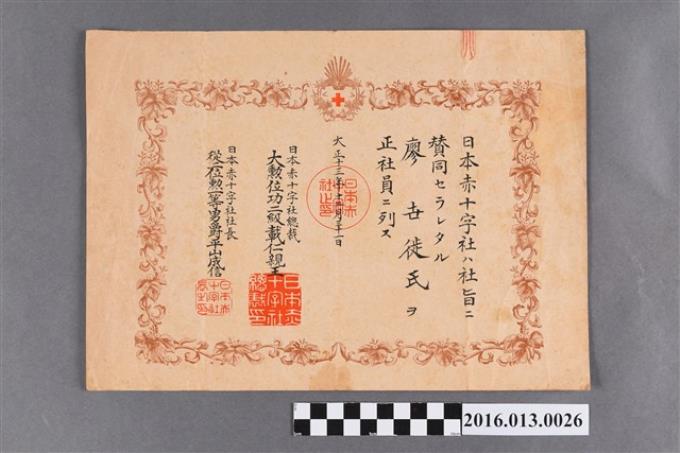 日本赤十字社ハ社旨ニ
賛同セラレタル
廖世徙氏ヲ
正社員ニ列ス
大正十三年十二月二十一日
日本赤十字社總裁
大勲位功二級載仁親王
日本赤十字社社長
從二位勲一等男爵平山成信
日本赤十字社總裁印
2016.013.0026